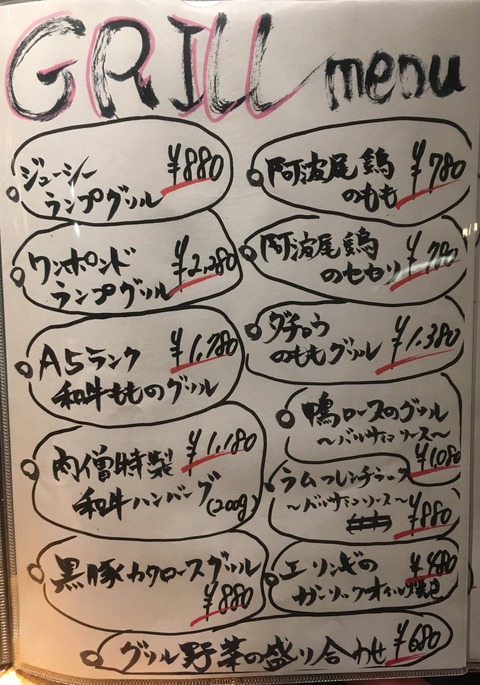 GRILL menu
ジューシー ¥880
ランプグリル
ワンポンド ¥2,280
ランプグリル
A5ランク ¥1,780
和牛もものグリル
肉僧特製 ¥1,180
和牛ハンバーグ(200g)
黒豚カタロースグリル
¥880
阿波尾鶏 ¥780
のもも
阿波尾鶏 ¥780
のセセリ
ダチョウ ¥1,380
のももグリル
鴨ロースのグリル
〜バルサミコソース〜
¥1,080
〜バルサミコソース〜
¥880
エリンギの ¥480
ガーリックオイル焼き
グリル野菜の盛り合わせ ¥680